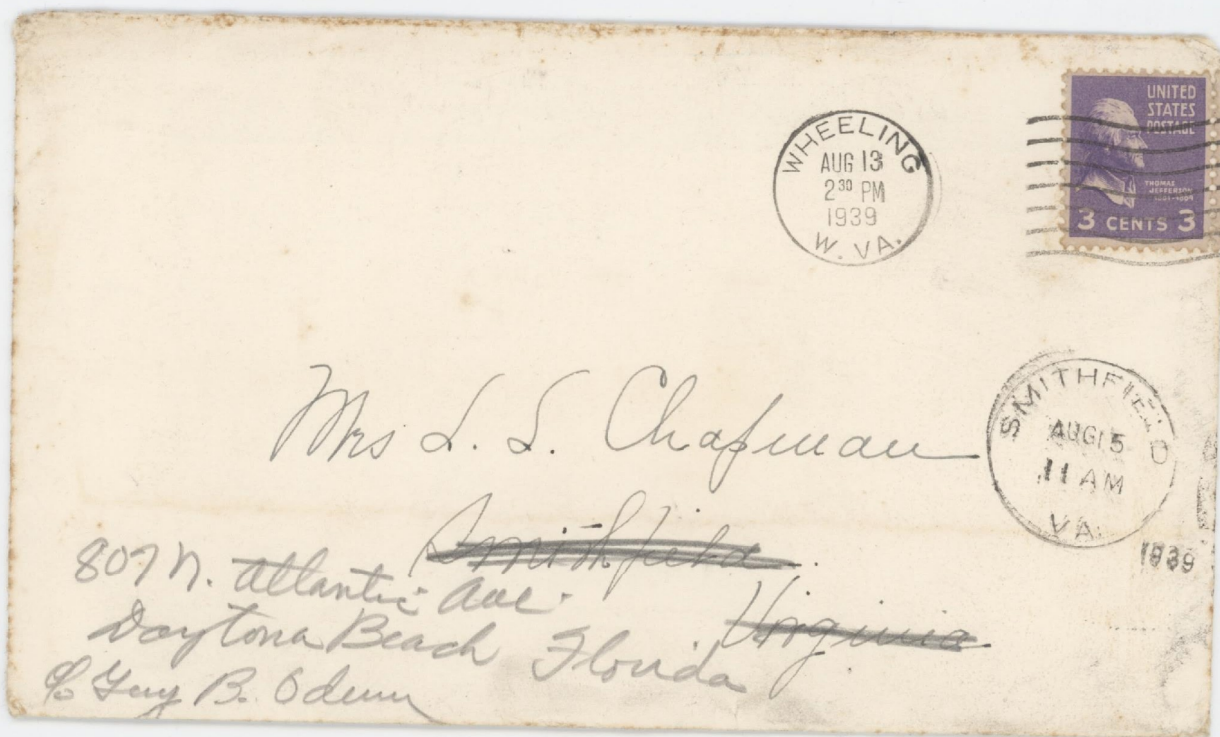 WHEELING
AUG 13
2 30 PM
1939
W. VA.
UNITED
STATES
POSTAGE
THOMAS
JEFFERSON
3 CENTS 3
SMITHFIELD
AUG 15
11 AM
VA.
1939
Mrs L. S. Chapman
Smithfield
Virginia
807 N. Atlantic Ave.
Daytona Beach Florida
c/o Guy B. Odum